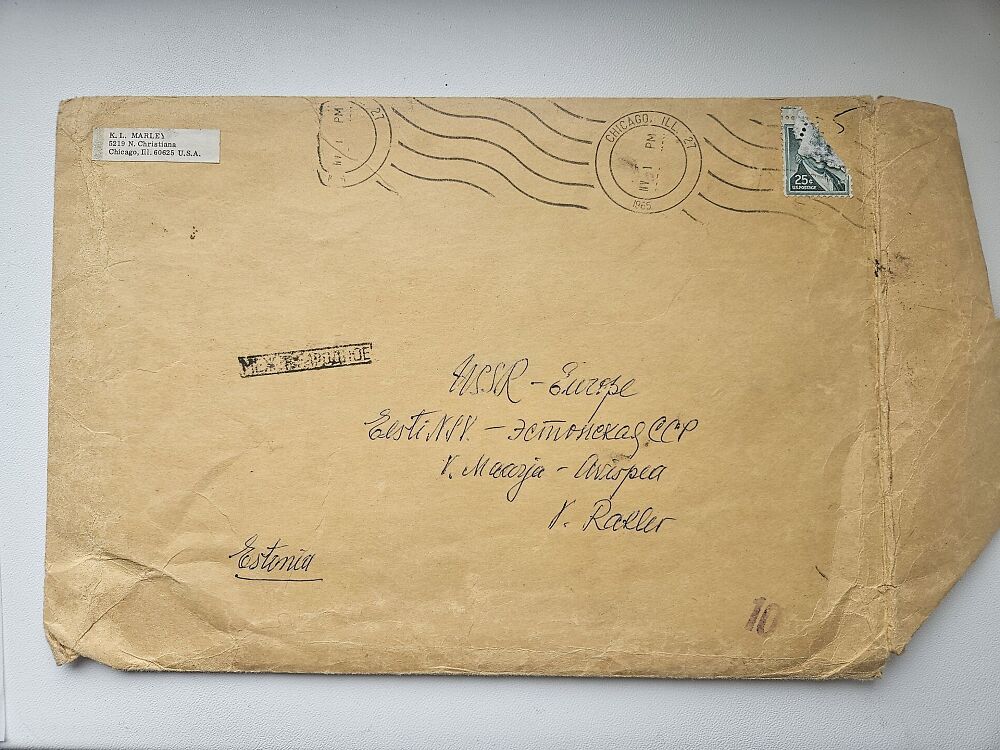 K. L. MARLEY
5219 N. Christiana
Chicago, Ill. 60625 U.S.A.
PM
27
CHICAGO, ILL. 27
PM
1965
25¢
U.S. POSTAGE
USSR - Europe
Eesti NSV. - Эстонская ССР
V. Maarja - Avispea
V. Rakler
Estonia
10